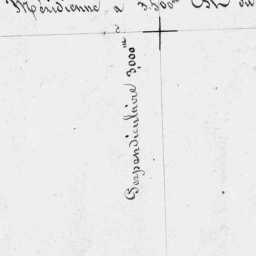 Méridienne à 3,500ᵐ
Perpendiculaire 3,000ᵐ à